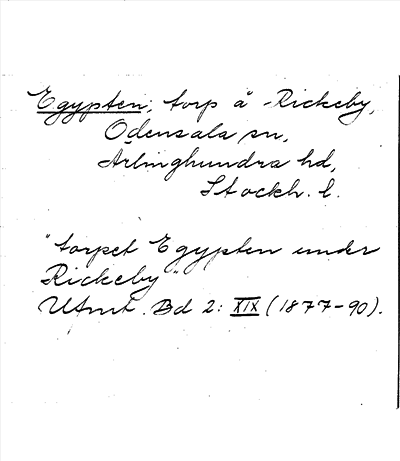 Egypten, torp å Rickeby,
Odensala sn,
Ärlinghundra hd,
Stockh. l.
"torpet Egypten under
Rickeby"
Utmt. Bd 2: XIX (1877-90).